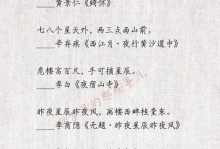 ____黄景仁《绮怀》
七八个星天外，两三点雨山前。
____辛弃疾《西江月·夜行黄沙道中》
危楼高百尺，手可摘星辰。
____李白《夜宿山寺》
昨夜星辰昨夜风，画楼西畔桂堂东。
____李商隐《无题·昨夜星辰昨夜风》